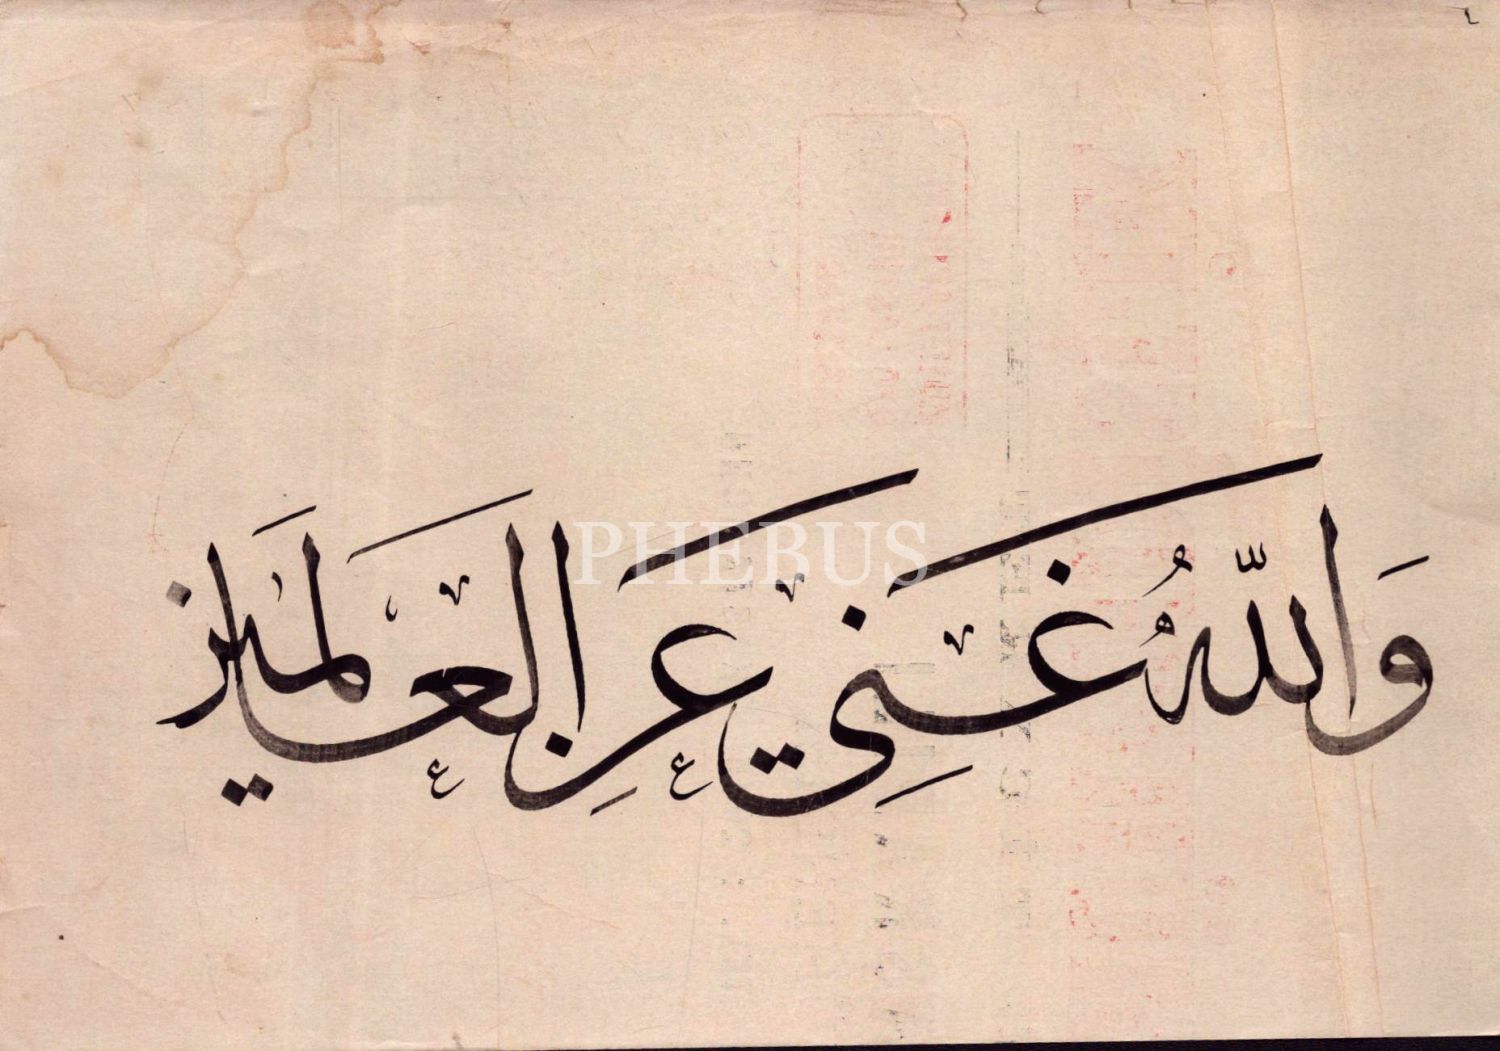 وَاللّٰهُ غَنِيٌّ عَنِ الْعَالَمِينَ
PHEBUS